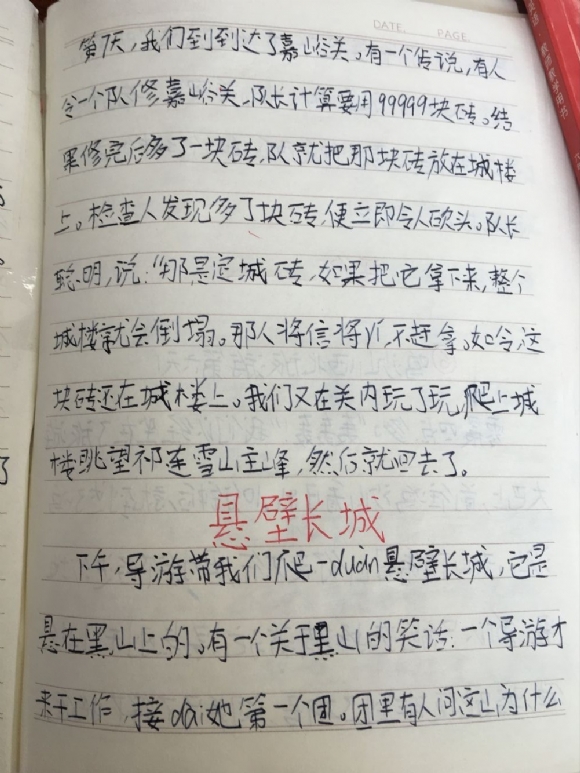 DATE. PAGE
第7天，我们到到达了嘉峪关。有一个传说，有人
令一个队修嘉峪关，队长计算要用99999块砖。结
果修完后多了一块砖，队就把那块砖放在城楼
上。检查人发现多了块砖，便立即令人砍头。队长
聪明，说："那是定城砖，如果把它拿下来，整个
城楼就会倒塌。那人将信将疑，不赶拿。如今这
块砖还在城楼上。我们又在关内玩了玩，爬上城
楼眺望祁连雪山主峰，然后就回去了。
悬壁长城
下午，导游带我们爬一duàn悬壁长城，它是
悬在黑山上的。有一个关于黑山的笑话：一个导游才
来干工作，接dài她第一个团。团里有人问这山为什么
教师教学用书